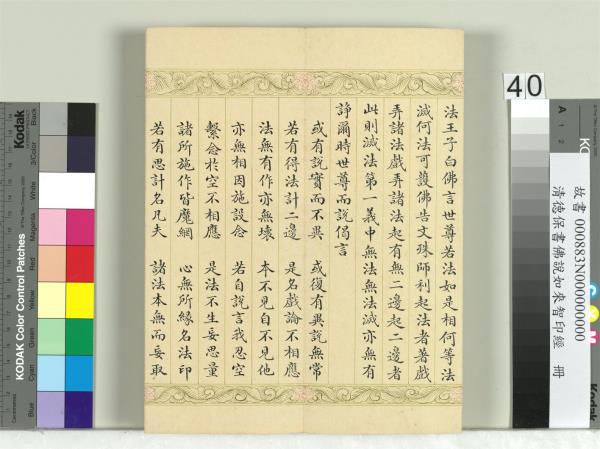 法王子白佛言世尊若法如是相何等法
滅何法可護佛告文珠師利起法者著戲
弄諸法戲弄諸法起有無二邊起二邊者
此則滅法第一義中無法無法滅亦無有
諍爾時世尊而說偈言
或有說實而不異 或復有異說無常
若有得法計二邊 是名戲論不相應
法無有作亦無壞 本不見自不見他
亦無相因施設念 若自說言我忍空
繫念於空不相應 是法不生妄思量
諸所施作皆魔網 心無所緣名法印
若有思計名凡夫 諸法本無而妄取
40
故書 000883N000000000
清德保書佛說如來智印經 冊
Kodak
KODAK Color Control Patches
Blue
Cyan
Green
Yellow
Red
Magenta
White
3/Color
Black
A
1
2